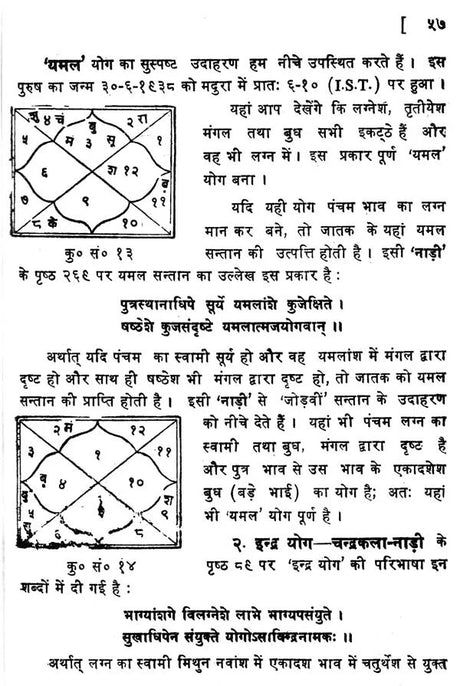 [ ५७
'यमल' योग का सुस्पष्ट उदाहरण हम नीचे उपस्थित करते हैं । इस
पुरुष का जन्म ३०-६-१९३८ को मदुरा में प्रातः ६-१० (I.S.T.) पर हुआ ।
यहां आप देखेंगे कि लग्नेश, तृतीयेश
मंगल तथा बुध सभी इकट्ठे हैं और
वह भी लग्न में । इस प्रकार पूर्ण 'यमल'
योग बना ।
शु ४ चं
बु
२ रा
५
मं ३ सू
१
६
श १२
९
७
८ के
१०
११
बृ
कु० सं० १३
यदि यही योग पंचम भाव का लग्न
मान कर बने, तो जातक के यहां यमल
सन्तान की उत्पत्ति होती है । इसी 'नाड़ी'
के पृष्ठ २६९ पर यमल सन्तान का उल्लेख इस प्रकार है :
पुत्रस्थानाधिपे सूर्ये यमलांशे कुजेक्षिते ।
षष्ठेशे कुजसंदृष्टे यमलात्मजयोगवान् ।।
अर्थात् यदि पंचम का स्वामी सूर्य हो और वह यमलांश में मंगल द्वारा
दृष्ट हो और साथ ही षष्ठेश भी मंगल द्वारा दृष्ट हो, तो जातक को यमल
सन्तान की प्राप्ति होती है । इसी 'नाड़ी' से 'जोड़वीं' सन्तान के उदाहरण
को नीचे देते हैं । यहां भी पंचम लग्न का
स्वामी तथा बुध, मंगल द्वारा दृष्ट है
और पुत्र भाव से उस भाव के एकादशेश
बुध (बड़े भाई) का योग है; अतः यहां
भी 'यमल' योग पूर्ण है ।
२ मं
१२
३
१
११
४
१०
श
९
५
८
कु० सं० १४
२. इन्द्र योग—चन्द्रकला-नाड़ी के
पृष्ठ ८९ पर 'इन्द्र योग' की परिभाषा इन
शब्दों में दी गई है :
भाग्यांशगे विलग्नेशे लाभे भाग्यपसंयुते ।
सुखाधिपेन संयुक्ते योगोऽसाविन्द्रनामकः ।।
अर्थात् लग्न का स्वामी मिथुन नवांश में एकादश भाव में चतुर्थेश से युक्त